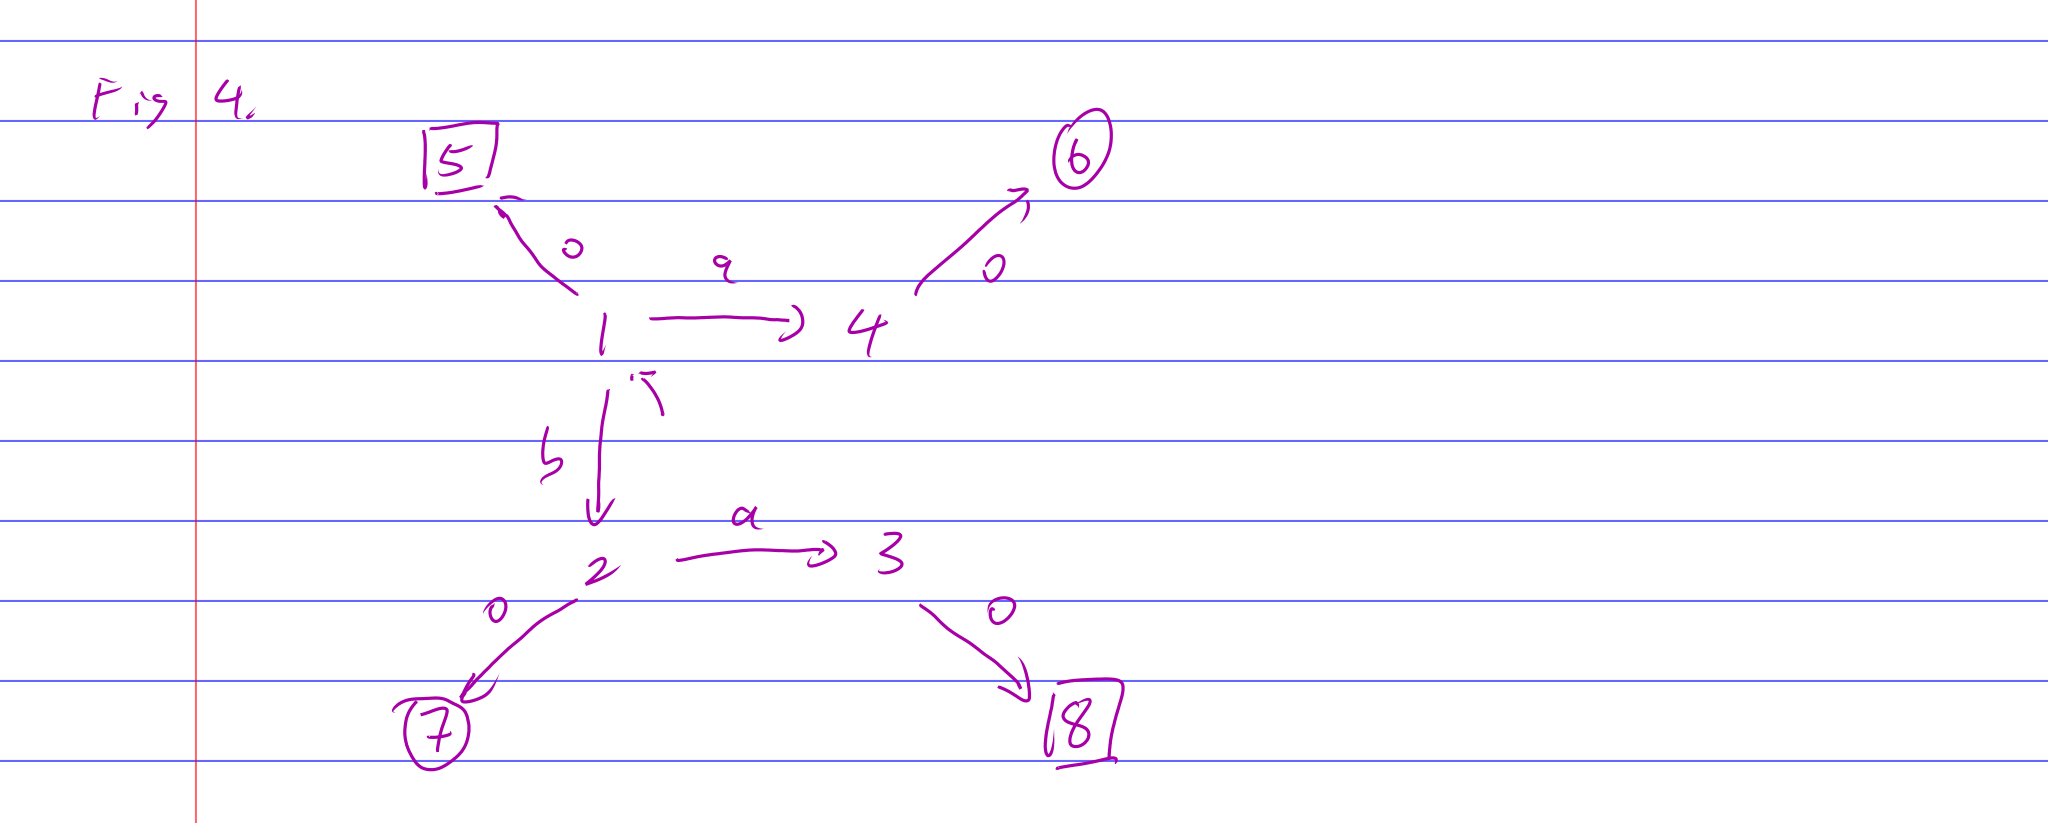 Fig 4.
5
6
0
a
0
1
4
b
a
2
3
0
0
7
8